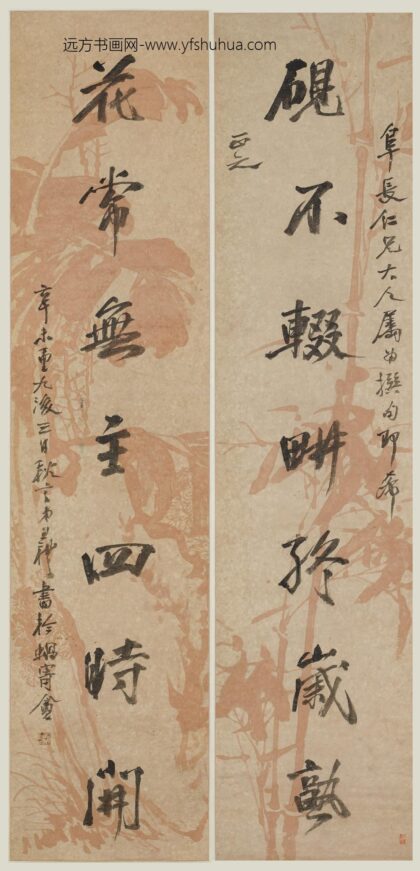 远方书画网-www.yfshuhua.com
阜長仁兄大人屬為撰句即希
正之
硯不輟畊終歲熟
花常無主四時開
辛未重九後三日
書於蝸寄盦